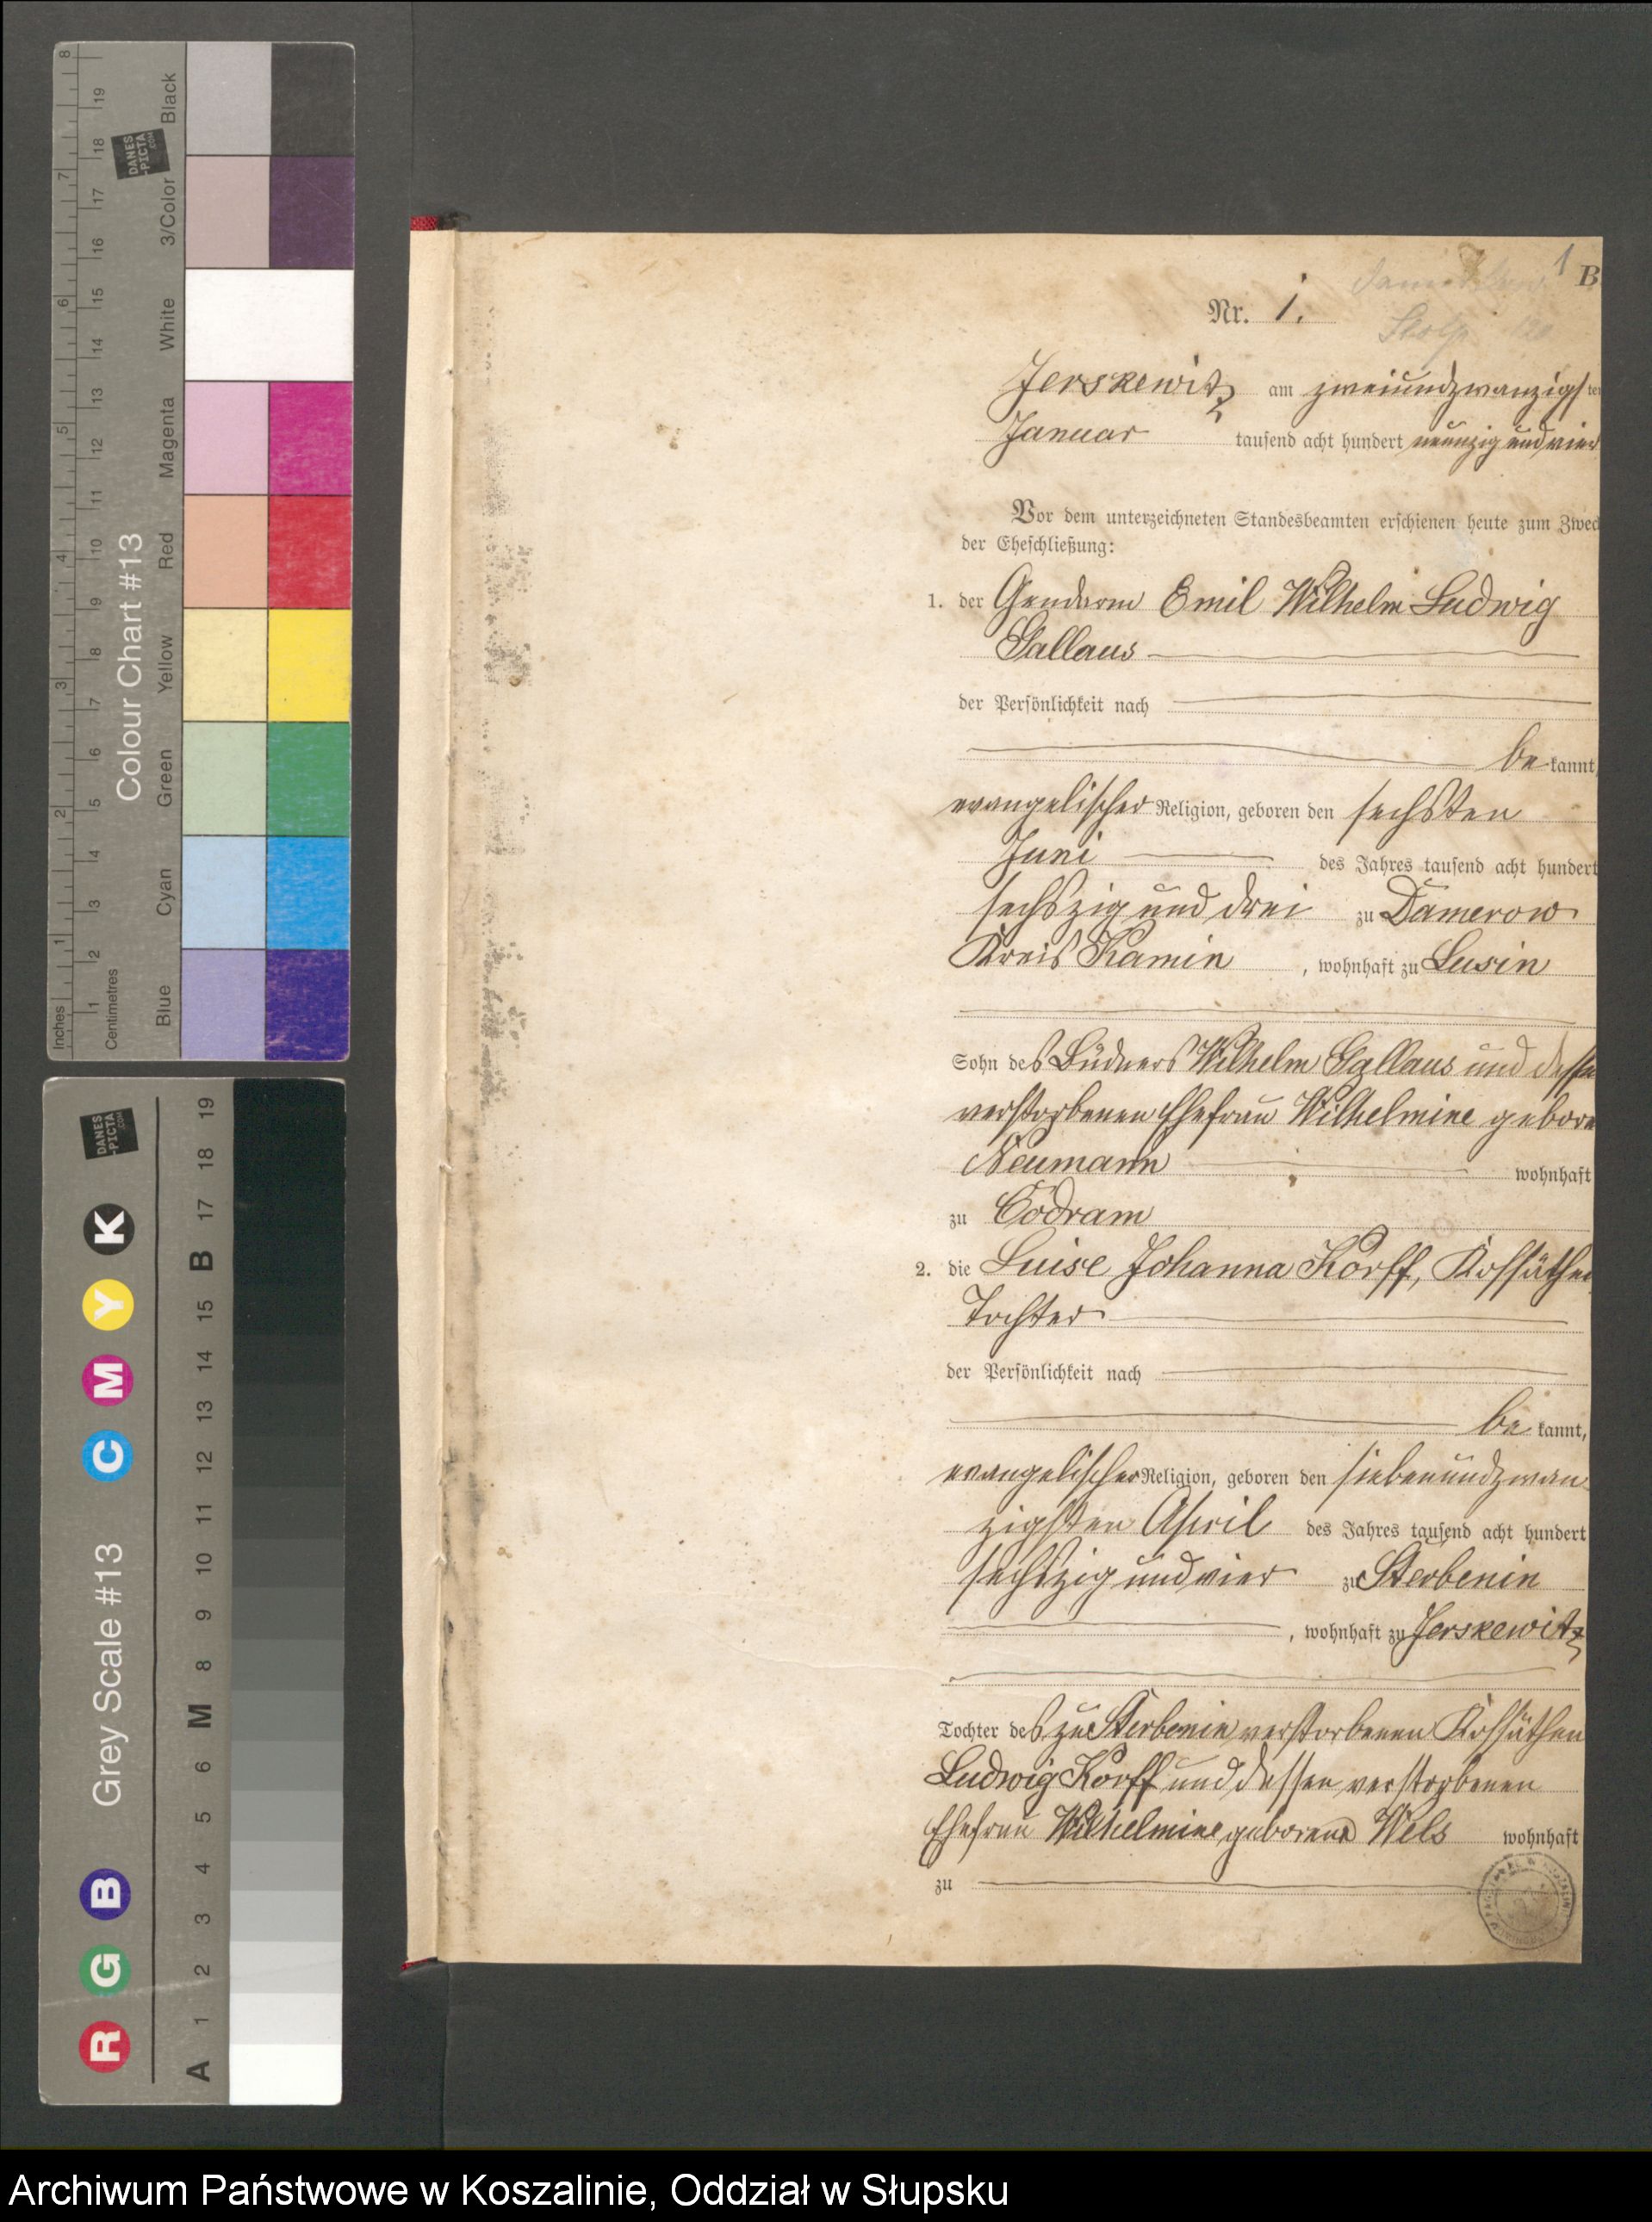 1 B
Nr. 1.
Stolp
Jerskewitz am zweiundzwanzigsten
Januar tausend acht hundert neunzig und vier
Vor dem unterzeichneten Standesbeamten erschienen heute zum Zweck
der Eheschließung:
1. der Gendarm Emil Wilhelm Ludwig
Gallaus
der Persönlichkeit nach
be kannt,
evangelischer Religion, geboren den sechsten
Juni des Jahres tausend acht hundert
sechszig und drei zu Damerow
Kreis Kamin, wohnhaft zu Lusin
Sohn des Büdners Wilhelm Gallaus und dessen
verstorbenen Ehefrau Wilhelmine gebore
Neumann wohnhaft
zu Codram
2. die Luise Johanna Korff, Kossäthen
Tochter
der Persönlichkeit nach
be kannt,
evangelischer Religion, geboren den siebenundzwan
zigsten April des Jahres tausend acht hundert
sechszig und vier zu Sterbenin
, wohnhaft zu Jerskewitz
Tochter des zu Sterbenin verstorbenen Kossäthen
Ludwig Korff und dessen verstorbenen
Ehefrau Wilhelmine geborene Wels wohnhaft
zu
Colour Chart #13
Blue Cyan Green Yellow Red Magenta White 3/Color Black
Inches 1 2 3 4 5 6 7 8
Centimetres 1 2 3 4 5 6 7 8 9 10 11 12 13 14 15 16 17 18 19
DANES
-PICTA
.COM
Grey Scale #13
R G B C M Y K
A 1 2 3 4 5 6 M 8 9 10 11 12 13 14 15 B 17 18 19
DANES
-PICTA
.COM
Archiwum Państwowe w Koszalinie, Oddział w Słupsku